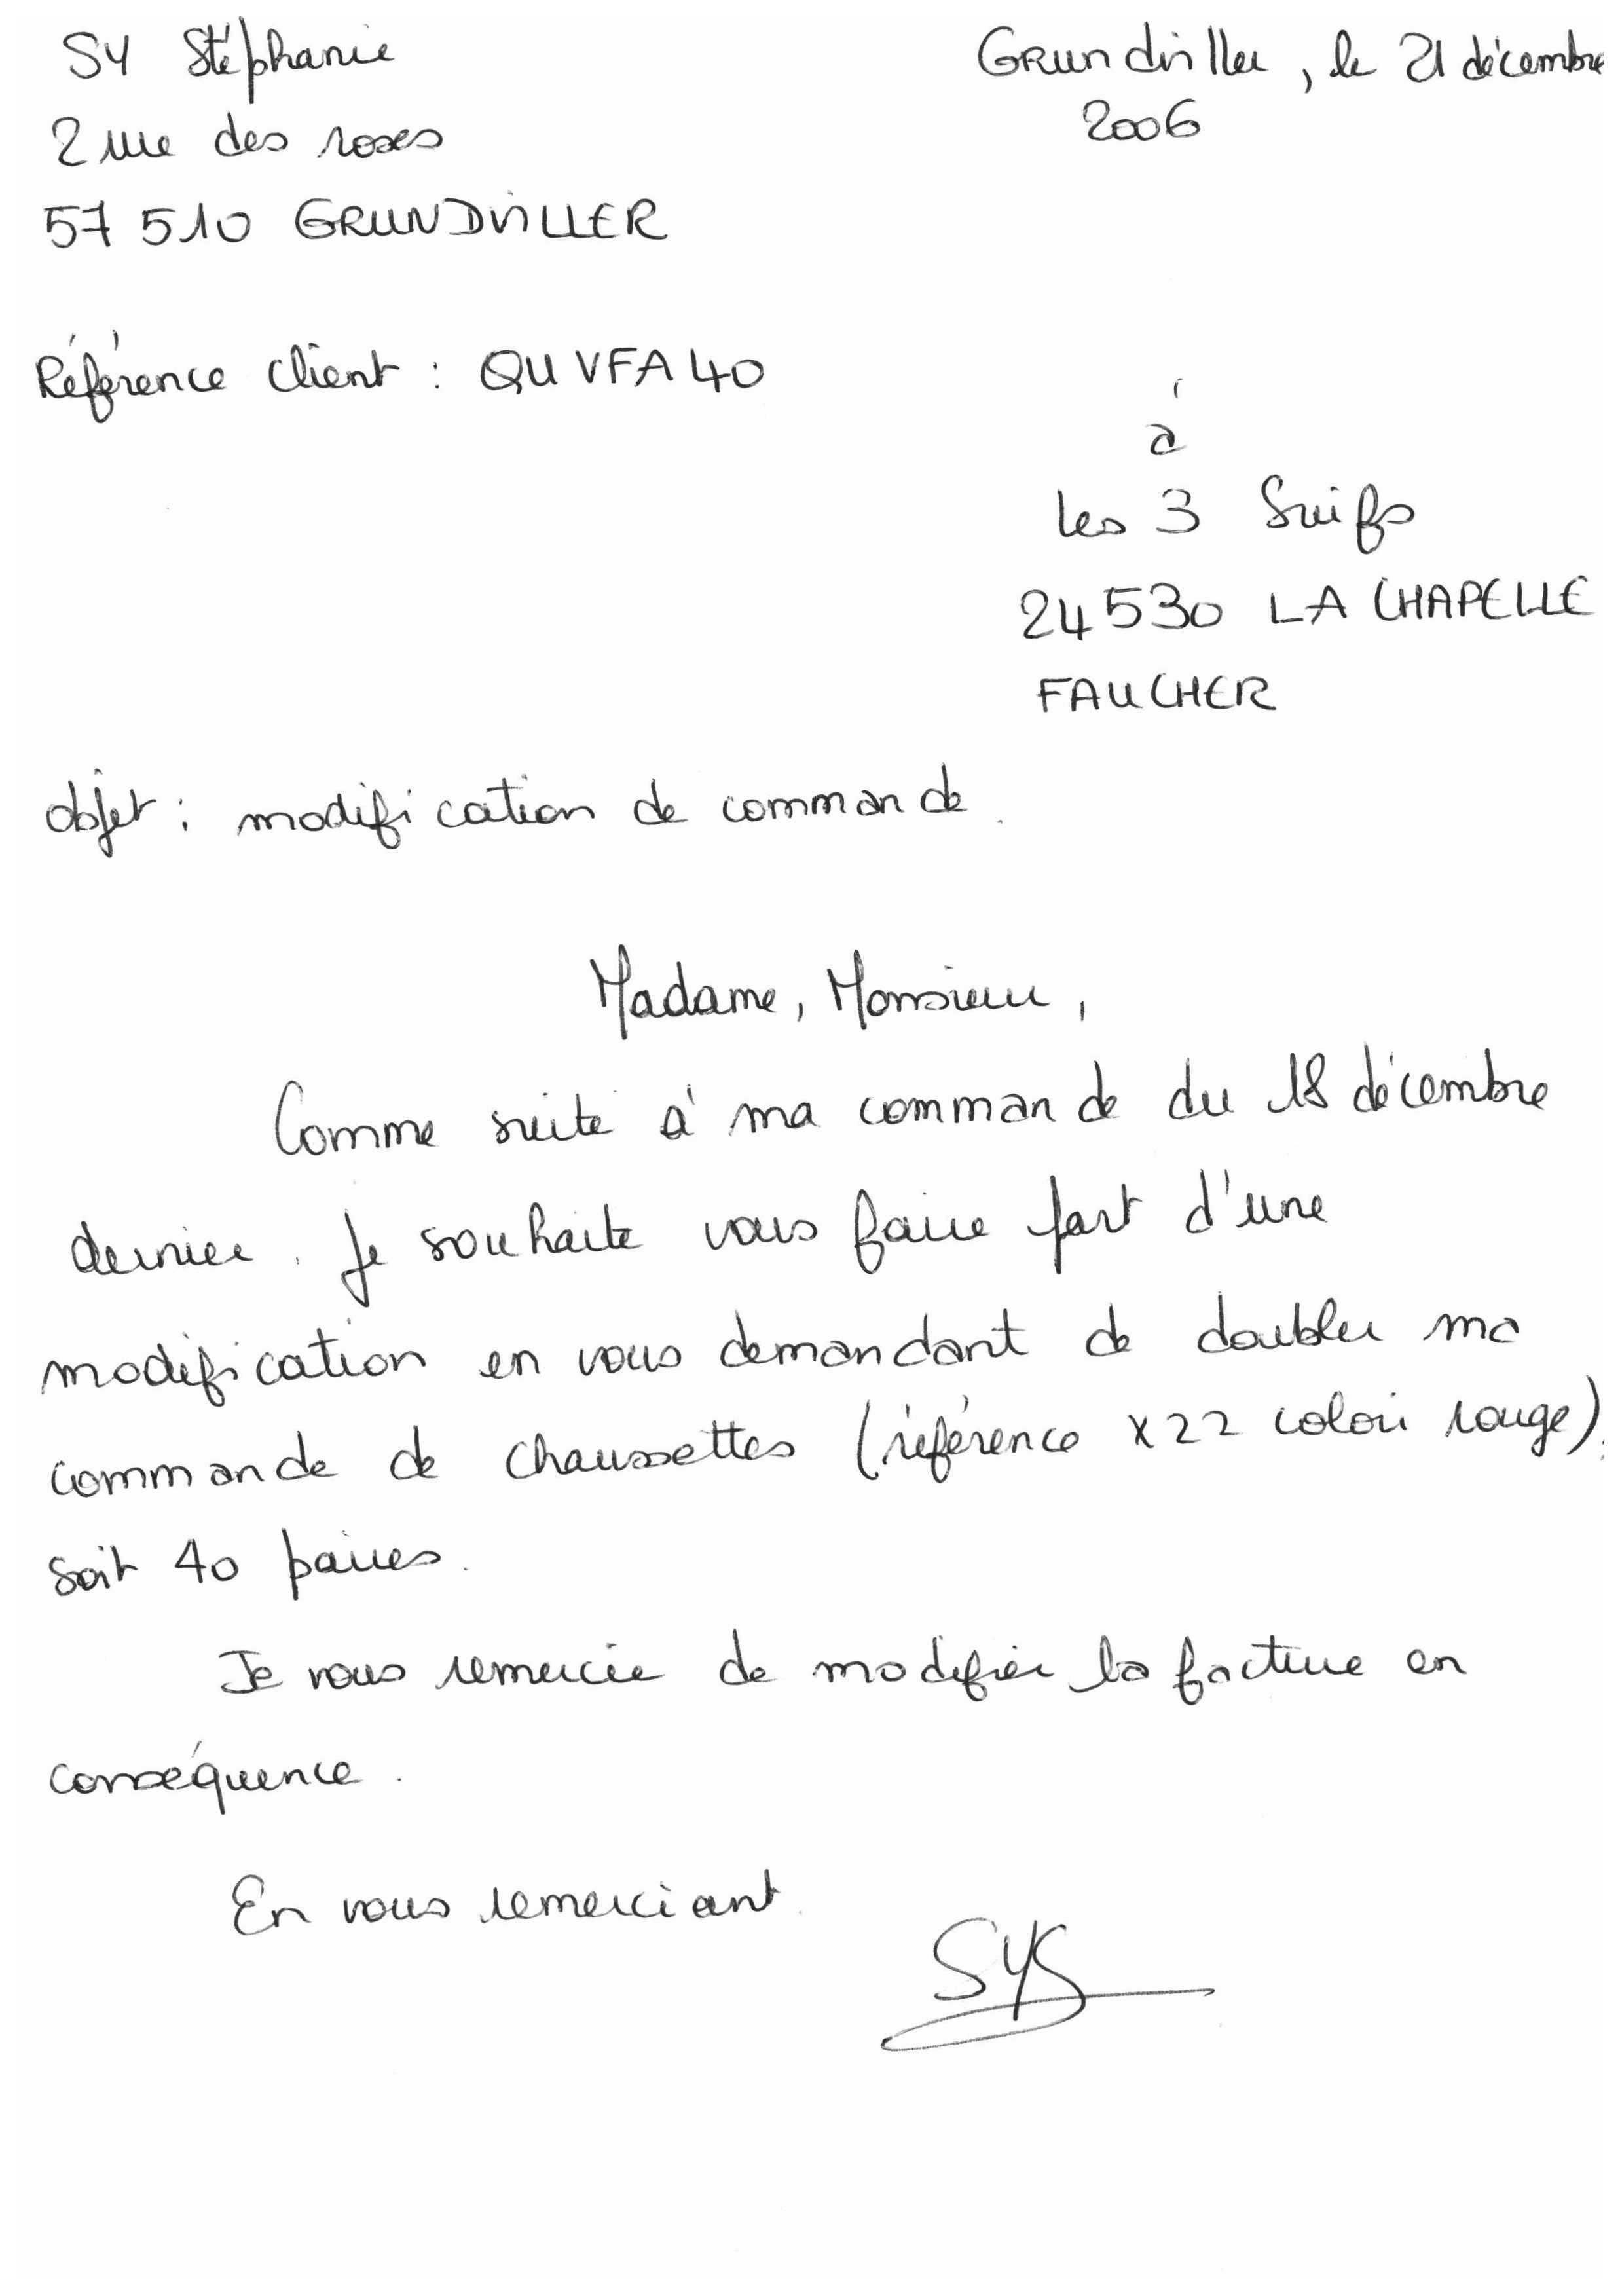 SY Stéphanie
Grundviller, le 21 décembre
2006
2 rue des roses
57 510 GRUNDVILLER
Référence client : QUVFA40
à
les 3 Suifs
24530 LA CHAPELLE
FAUCHER
objet : modification de commande.
Madame, Monsieur,
Comme suite à ma commande du 18 décembre
dernier. Je souhaite vous faire part d'une
modification en vous demandant de doubler ma
commande de chaussettes (référence X22 colori rouge).
soit 40 paires.
Je vous remercie de modifier la facture en
conséquence.
En vous remerciant.
SYS